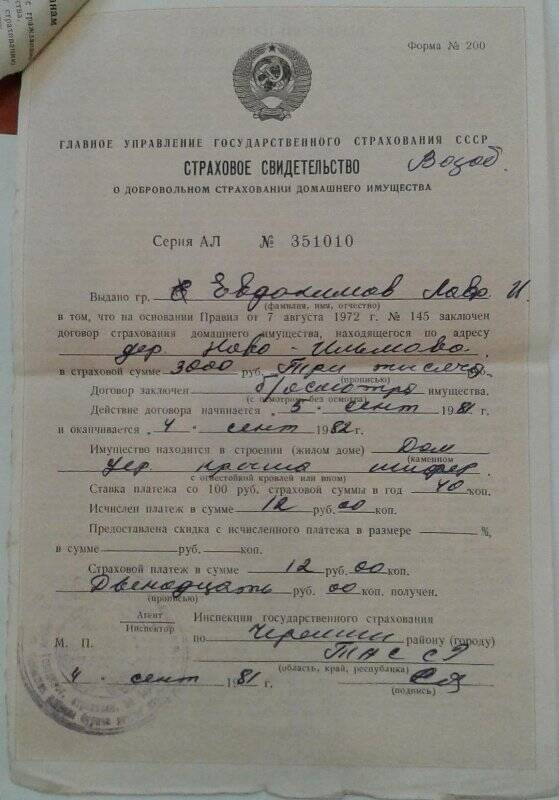 Форма № 200
ГЛАВНОЕ УПРАВЛЕНИЕ ГОСУДАРСТВЕННОГО СТРАХОВАНИЯ СССР
СТРАХОВОЕ СВИДЕТЕЛЬСТВО Возоб.
О ДОБРОВОЛЬНОМ СТРАХОВАНИИ ДОМАШНЕГО ИМУЩЕСТВА
Серия АЛ № 351010
Выдано гр. Евдокимов Лавр И.
(фамилия, имя, отчество)
в том, что на основании Правил от 7 августа 1972 г. № 145 заключен
договор страхования домашнего имущества, находящегося по адресу
дер. Ново-Ильмово
в страховой сумме 3000 руб. Три тысячи руб.
(прописью)
Договор заключен б/осмотра имущества.
(с осмотром, без осмотра)
Действие договора начинается „5" сент 1981 г.
и оканчивается „4" сент 1982 г.
Имущество находится в строении (жилом доме) Дом
(каменном
дер. крыша шифер.
с огнестойкой кровлей или ином)
Ставка платежа со 100 руб. страховой суммы в год 40 коп.
Исчислен платеж в сумме 12 руб. 00 коп.
Предоставлена скидка с исчисленного платежа в размере %,
в сумме руб. коп.
Страховой платеж в сумме 12 руб. 00 коп.
Двенадцать руб. 00 коп. получен.
(прописью)
Агент
Инспектор
Инспекции государственного страхования
М. П. по району (городу)
ТАССР
(область, край, республика)
„4" сент 1981 г.
(подпись)